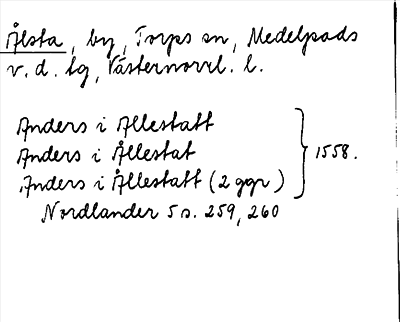 Ålsta, by, Torps sn, Medelpads
v. d. tg, Västernorrl. l.
Anders i Allestatt
Anders i Ållestat } 1558.
Anders i Ållestatt (2 ggr)
Nordlander 5 s. 259, 260